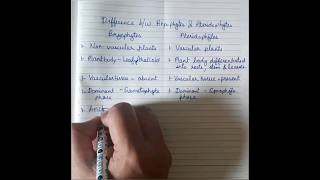 Difference b/w Bryophytes & Pteridophytes
Bryophytes
Pteridophytes
1. Non vascular plants
1. Vascular plants
2. Plantbody - leafy/thalloid
2. Plant body differentiated into root, stem & leaves
3. Vascular tissue - absent
3. Vascular tissue - present
4. Dominant - Gametophyte phase
4. Dominant - Sporophyte phase
5.